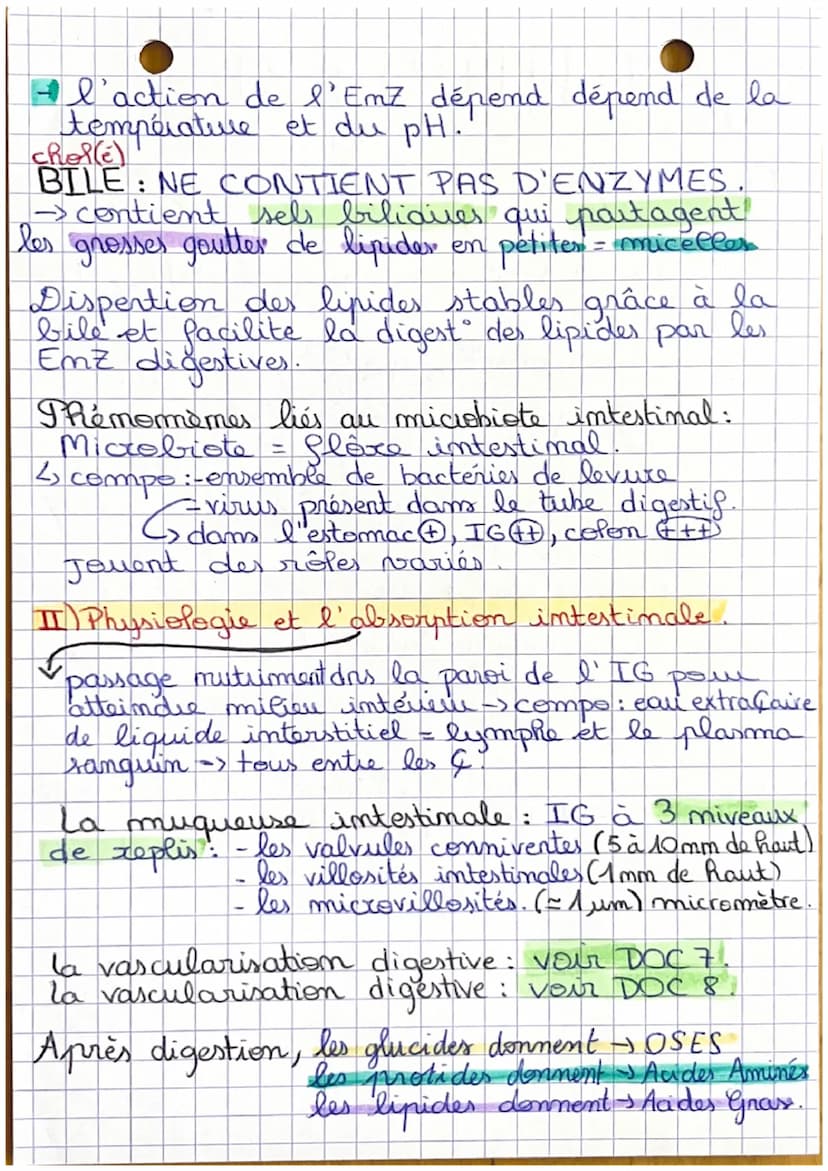 → l'action de l'EmZ dépend dépend de la
température et du pH.
chol(é)
BILE : NE CONTIENT PAS D'ENZYMES.
→ contient sels biliaires qui partagent
les grosses gouttes de lipides en petites = micelles
Dispention des lipides stables grâce à la
bile et facilite la digest° des lipides par les
EmZ digestives.
Phénomèmes liés au microbiote intestinal :
Microbiote = flore intestinal.
↳ compo : - ensemble de bactéries de levure
- virus présent dans le tube digestif.
↳ dans l'estomac ⊕, IG (++), colon (+++)
Jouent des rôles variés.
II) Physiologie et l'absorption intestinale.
passage nutriment dns la paroi de l'IG pour
atteindre milieu intérieur → compo : eau extraÇaire
de liquide interstitiel = lymphe et le plasma
sanguin → tous entre les Ç.
La muqueuse intestinale : IG à 3 niveaux
de replis : - les valvules conniventes (5 à 10mm de haut)
- les villosités intestinales (1mm de haut)
- les microvillosités. (≈ 1 µm) micromètre.
la vascularisation digestive : voir DOC 7.
la vascularisation digestive : voir DOC 8.
Après digestion, les glucides donnent → OSES
les protides donnent → Acides Aminés
les lipides donnent → Acides Gras.